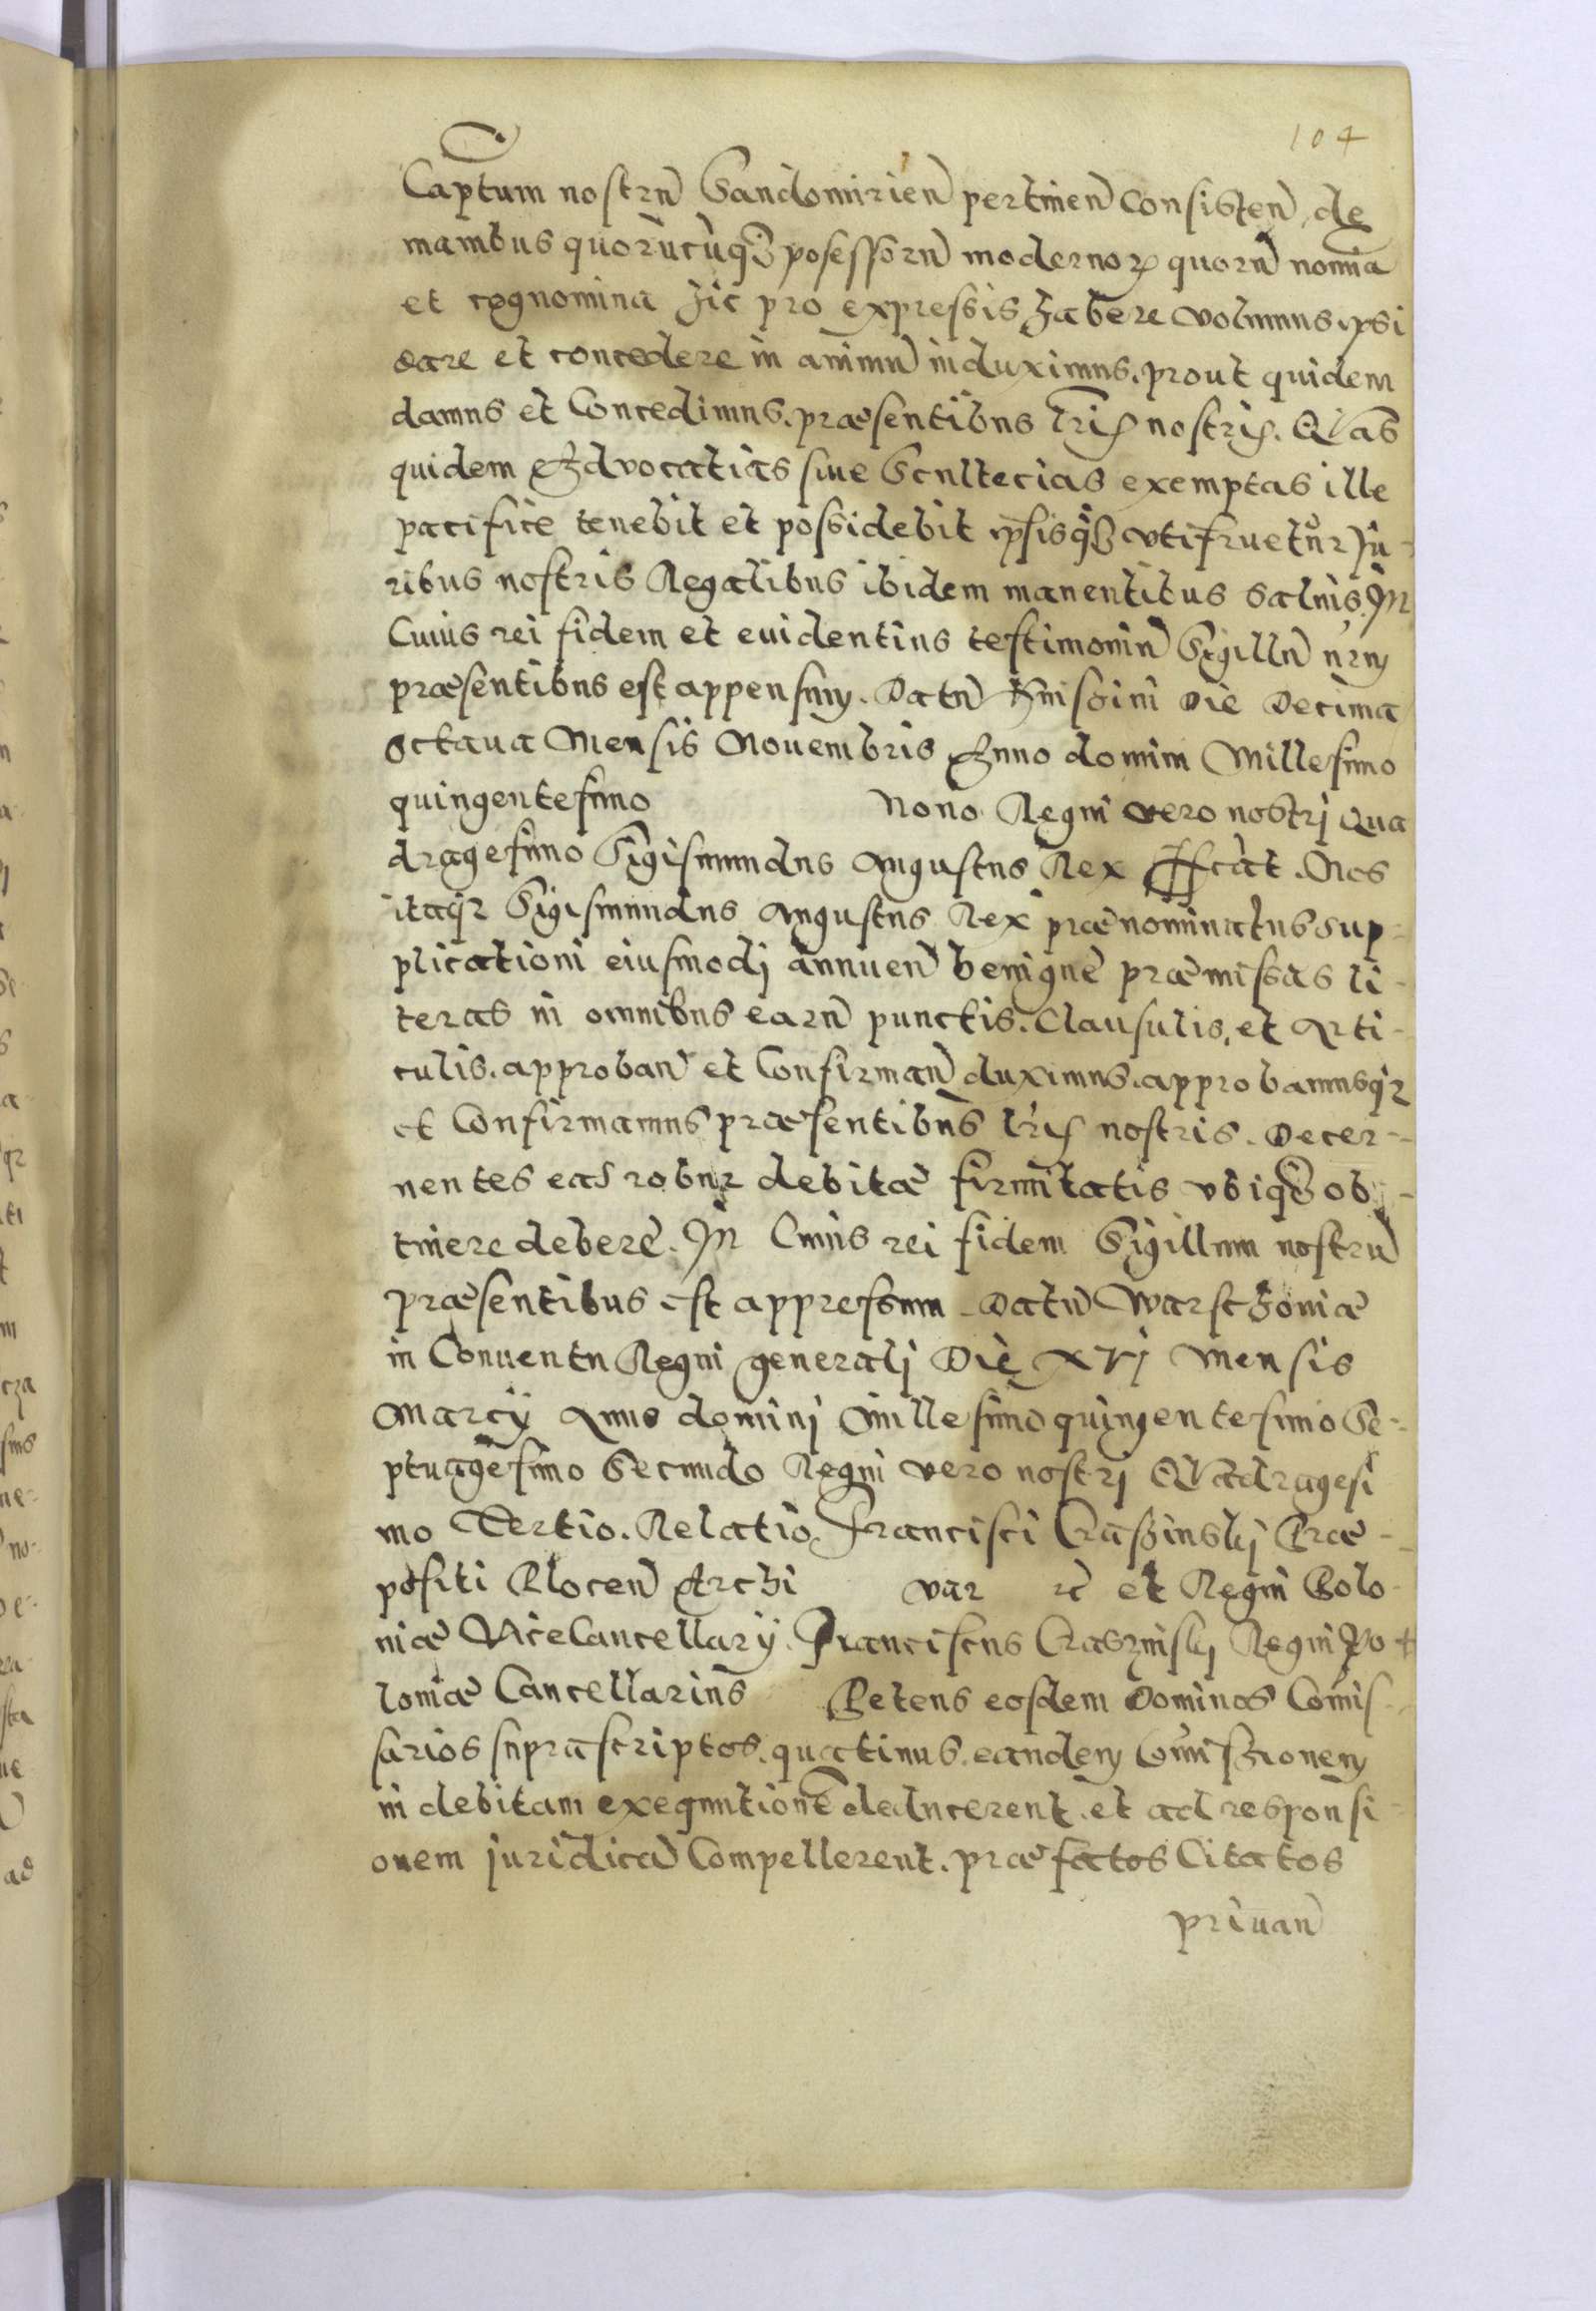 104
Captum nostrū Sandomirien̄ pertinen̄ Consisten̄ de
manibus quorūcūqȝ posessorū modernoꝝ quorū nomīa
et cognomina hic pro expressis habere volumus ipsi
dare et concedere in animū induximus. prout quidem
damus et Concedimus. præsentibus lr̄is nostris. Quas
quidem Aduocatias siue Scultecias exemptas ille
pacifice tenebit et possidebit ipsisqȝ utifruetur Ju-
ribus nostris Regalibus ibidem manentibus saluis. In
Cuius rei fidem et euidentius testimoniū Sigillū nr̄m
præsentibus est appensum. Datū Knischini Die Decima
Octaua Mensis Nouembris Anno domini Millesimo
quingentesimo nono Regni vero nostri Qua
dragesimo Sigismundus Augustus Rex sscāt. Nos
itaqꝫ Sigismundus Augustus Rex prænominatus sup-
plicationi eiusmodi annuen̄ benigne præmissas li-
teras in omnibus earū punctis. Clausulis, et Arti-
culis. approban̄ et Confirman̄ duximus. approbamusqꝫ
et Confirmamus præsentibus lr̄is nostris. Decer-
nentes eas robur debitæ firmitatis vbiqȝ ob-
tinere debere. In Cuius rei fidem Sigillum nostrū
præsentibus est appressum. Datū Warschouiæ
in Conuentu Regni generalj Die xvj Mensis
Marcij Anno dominj Millesimo quingentesimo Se-
ptuagesimo Secundo Regni vero nostrj Quadragesi
mo Tertio. Relatio Francisci Crassinskj Præ-
positi Plocen̄ Archi var ꝛc̄ et Regni Polo-
niæ ViceCancellarij. Franciscus Craszinskj Regni Po +
loniæ Cancellarius Petens eosdem Dominos Com̄is-
sarios suprascriptos. quatinus. eandem Com̄issionem
in debitam exequutionē deducerent. et ad responsi-
onem juridicā Compellerent. præfatos Citatos
priuan̄